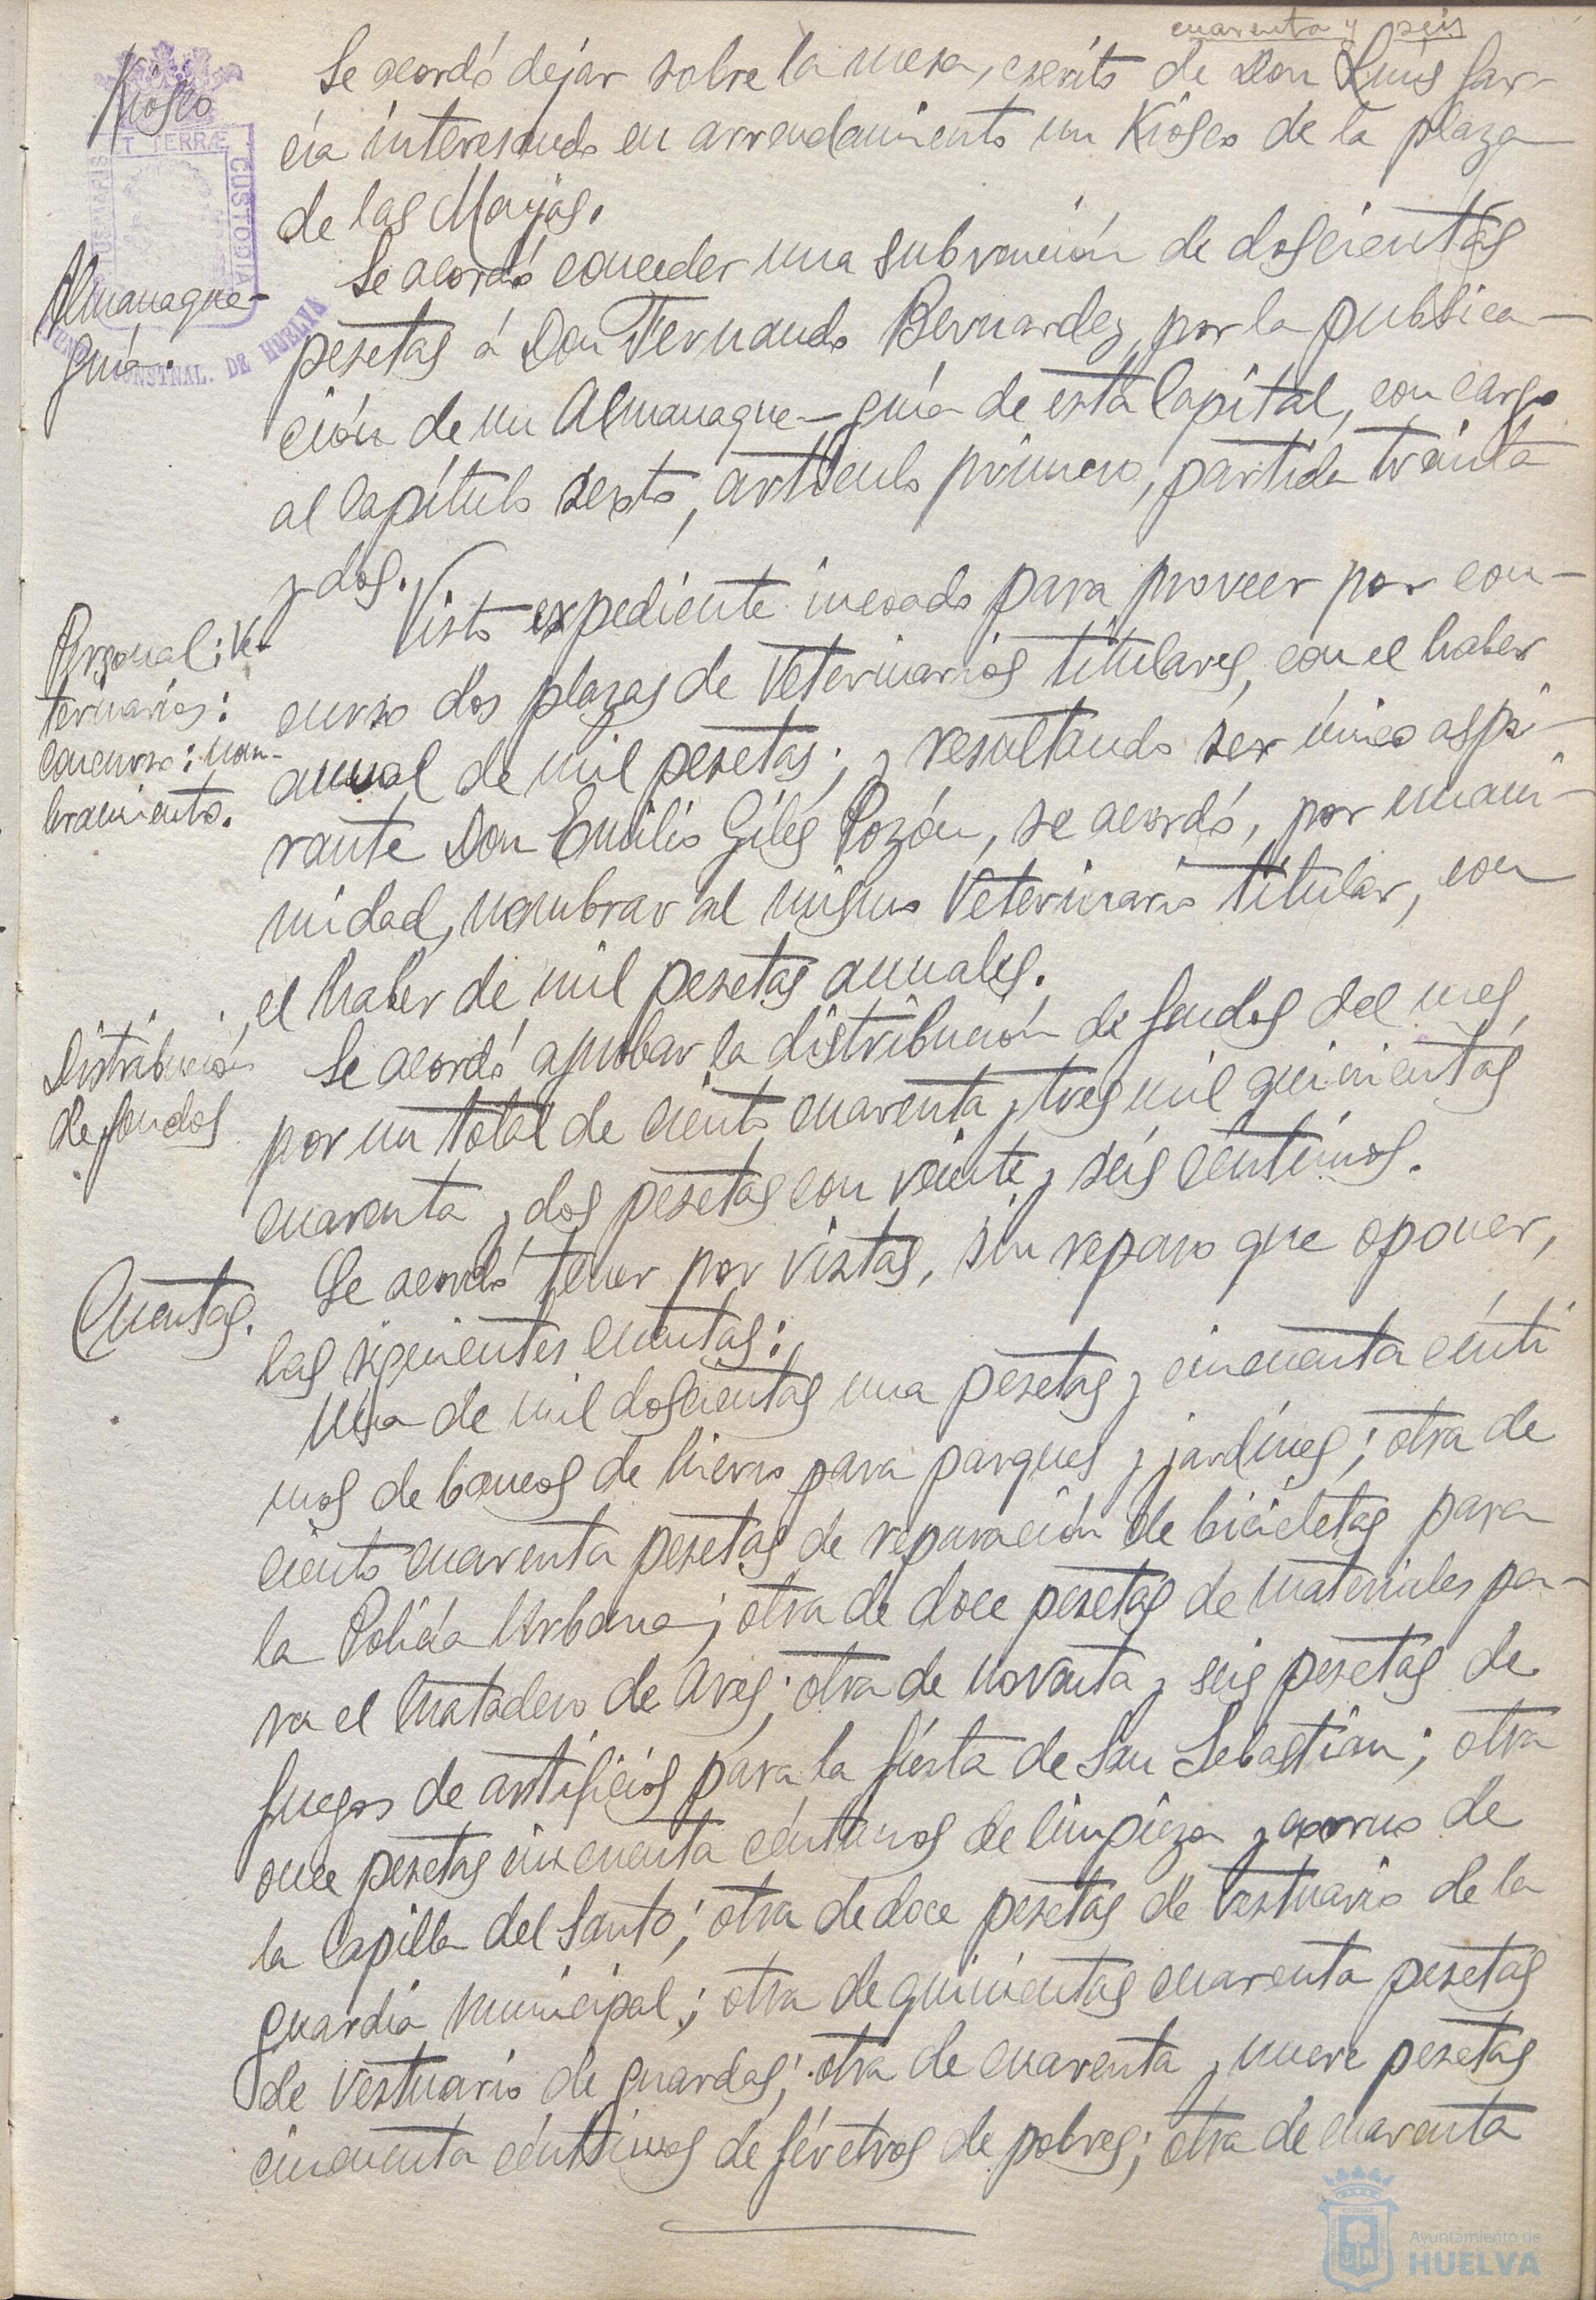 cuarenta y seis
Kiosco
Se acordó dejar sobre la mesa, escrito de Don Luis Gar-
cía interesando en arrendamiento un Kiosco de la plaza
de las Monjas.
Almanaque-
guía.
Se acordó conceder una subvención de doscientas
pesetas á Don Fernando Bermudez, por la publica-
ción de un Almanaque-guía de esta Capital, con cargo
al Capítulo sexto, artículo primero, partida treinta
y dos.
Personal; Ve-
terinarios:
concurso: nom-
bramiento.
Visto expediente incoado para proveer por con-
curso dos plazas de Veterinarios titulares, con el haber
anual de mil pesetas; y resultando ser único aspi-
rante Don Emilio Giles Pozón, se acordó, por unani-
midad, nombrar al mismo Veterinario titular, con
el haber de mil pesetas anuales.
Distribución
de fondos
Se acordó aprobar la distribución de fondos del mes,
por un total de ciento cuarenta y tres mil quinientas
cuarenta y dos pesetas con veinte y seis céntimos.
Cuentas.
Se acordó tener por vistas, sin reparo que oponer,
las siguientes cuentas:
Una de mil doscientas una pesetas y cincuenta cénti
mos de bancos de hierro para parques y jardines; otra de
ciento cuarenta pesetas de reparación de bicicletas para
la Policía Urbana; otra de doce pesetas de materiales pa-
ra el Matadero de Aves; otra de noventa y seis pesetas de
fuegos de artificios para la fiesta de San Sebastián; otra
once pesetas cincuenta céntimos de limpieza y exorno de
la Capilla del Santo; otra de doce pesetas de Vestuario de la
guardia Municipal; otra de quinientas cuarenta pesetas
de Vestuario de guardas; otra de cuarenta y nueve pesetas
cincuenta céntimos de féretros de pobres; otra de cuarenta
ET TERRÆ
CUSTODIA
CONSTNAL. DE HUELVA
Ayuntamiento de
HUELVA